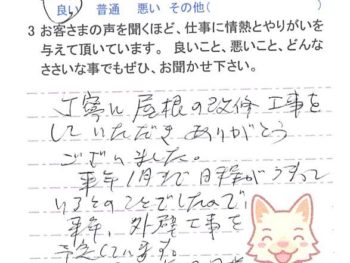 良い 普通 悪い その他(
3 お客さまの声を聞くほど、仕事に情熱とやりがいを
与えて頂いています。 良いこと、悪いこと、どんな
ささいな事でもぜひ、お聞かせ下さい。
丁寧に屋根の改修工事を
していただき ありがとう
ございました。
来年1月まで日程がうまって
いるとのことでしたので
来年、外壁工事を
予定しています。